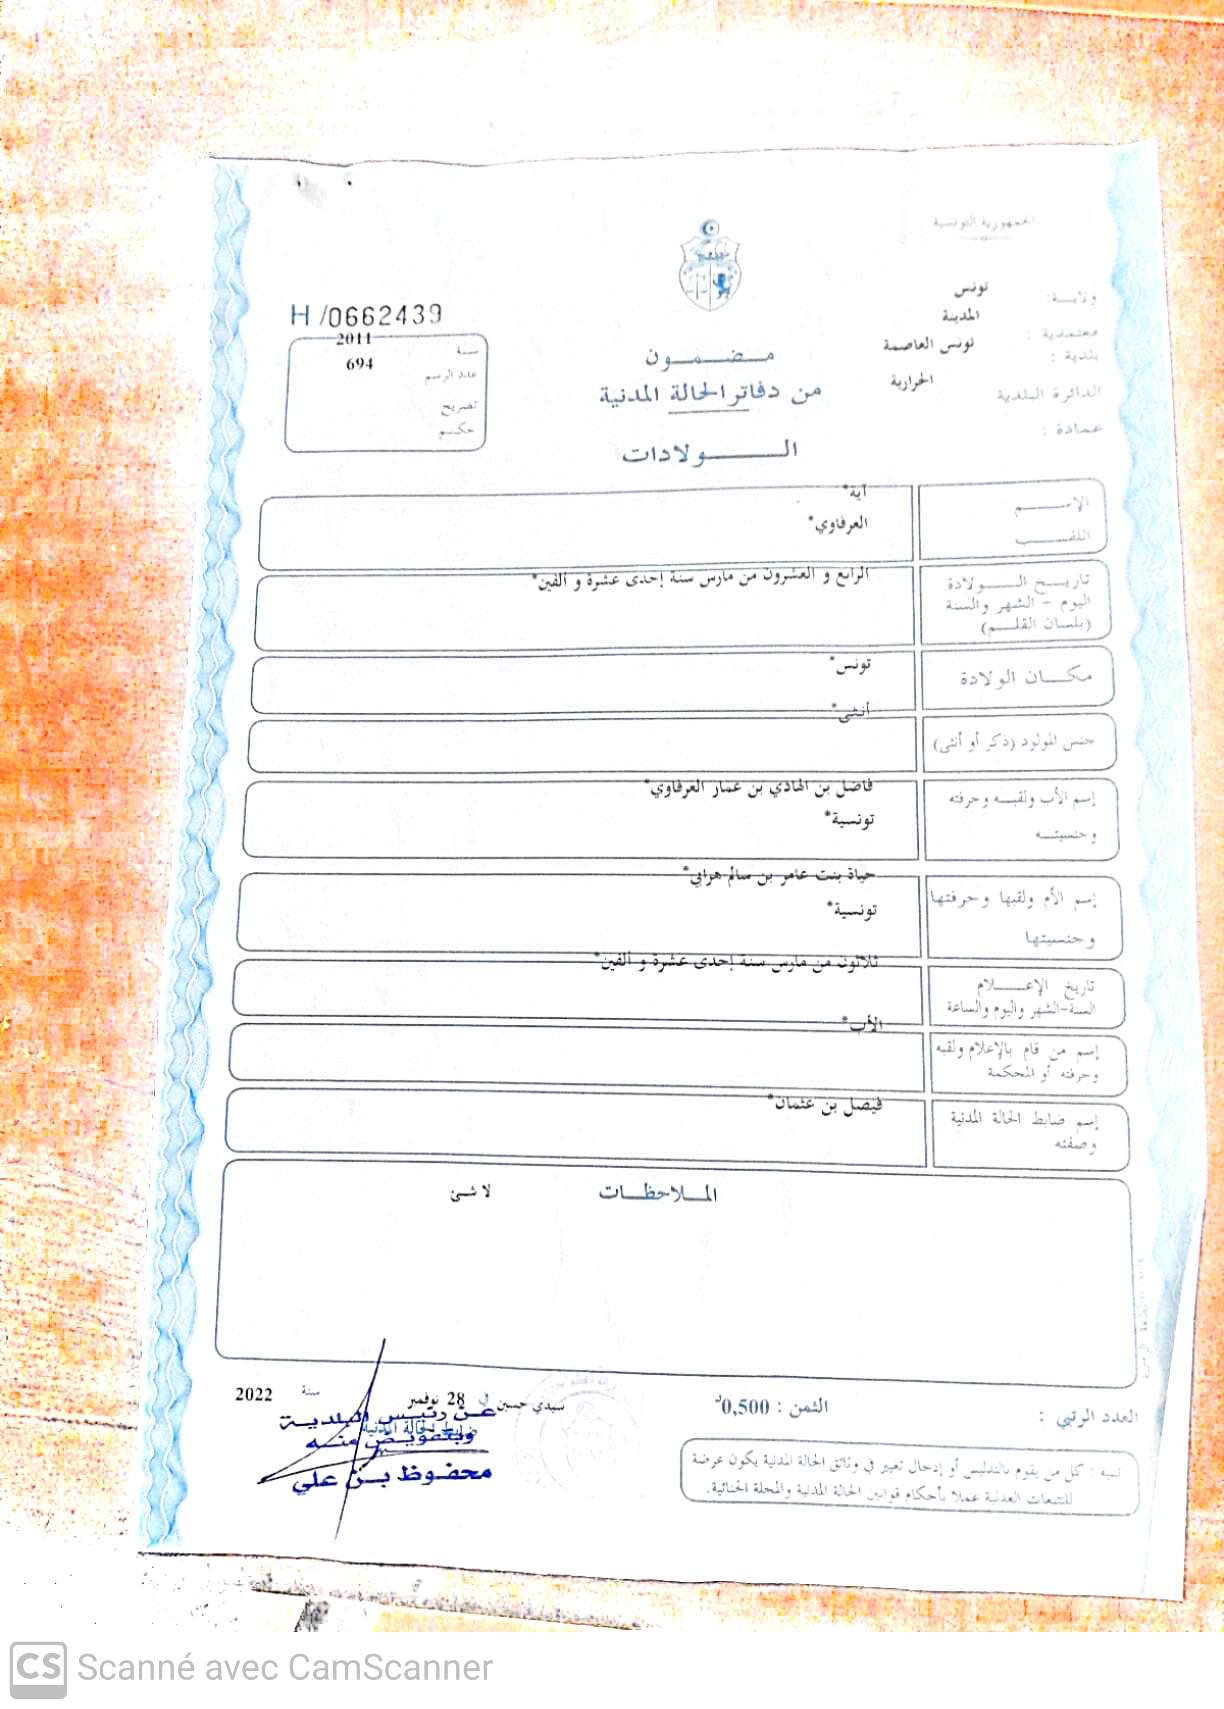 الجمهورية التونسية
ولاية: تونس
معتمدية : المدينة
بلدية : تونس العاصمة
الدائرة البلدية الحرارية
عمادة :
H /0662439
سنة 2011
عدد الرسم 694
تصريح
حكم
مضمون
من دفاتر الحالة المدنية
الولادات
الإسم آية*
اللقب العرفاوي*
تاريخ الولادة
اليوم - الشهر والسنة
(بلسان القلم)
الرابع و العشرون من مارس سنة إحدى عشرة و ألفين*
مكان الولادة تونس*
جنس المولود (ذكر أو أنثى) أنثى*
إسم الأب ولقبه وحرفته فاضل بن الهادي بن عمار العرفاوي*
وجنسيته تونسية*
إسم الأم ولقبها وحرفتها حياة بنت عامر بن سالم هرابي*
وجنسيتها تونسية*
تاريخ الإعلام ثلاثون من مارس سنة إحدى عشرة و ألفين*
السنة-الشهر واليوم والساعة
إسم من قام بالإعلام ولقبه الأب*
وحرفته أو المحكمة
إسم ضابط الحالة المدنية فيصل بن عثمان*
وصفته
الملاحظات لا شئ
العدد الرتبي :
الثمن : 0,500د
سيدي حسين في 28 نوفمبر سنة 2022
ضابط الحالة المدنية
عن رئيس البلدية
وبتفويض منه
محفوظ بن علي
تنبيه : كل من يقوم بالتدليس أو إدخال تغيير في وثائق الحالة المدنية يكون عرضة
للتتبعات العدلية عملا بأحكام قوانين الحالة المدنية والمجلة الجنائية.
CS Scanné avec CamScanner